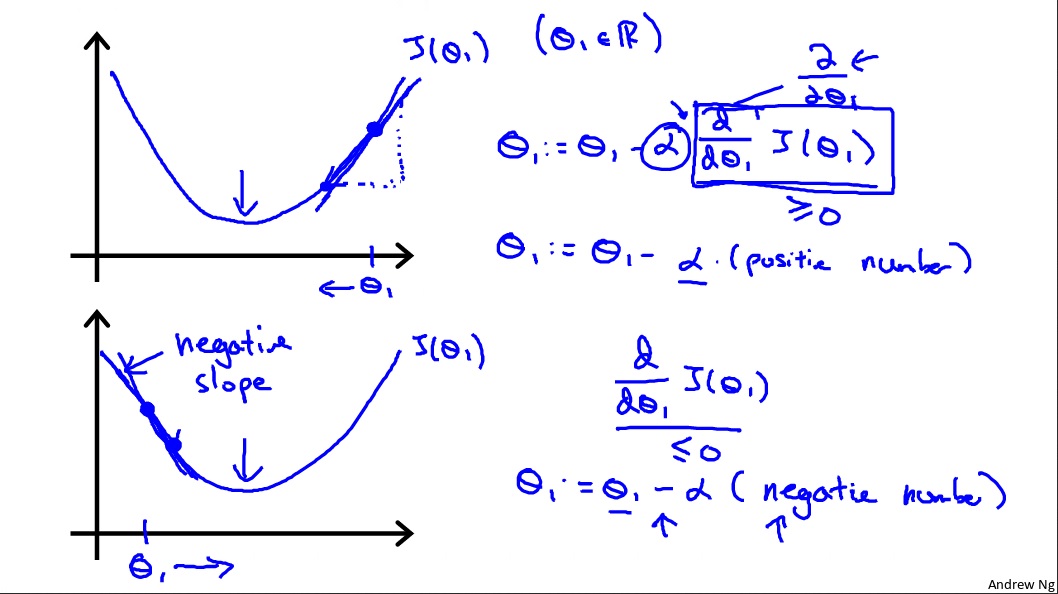 J(θ₁) (θ₁ ∈ ℝ)
∂/∂θ₁ ←
θ₁ := θ₁ - α d/dθ₁ J(θ₁)
≥ 0
θ₁ := θ₁ - α · (positie number)
← θ₁
negative slope
J(θ₁)
d/dθ₁ J(θ₁)
≤ 0
θ₁ := θ₁ - α (negatie number)
θ₁ →
Andrew Ng